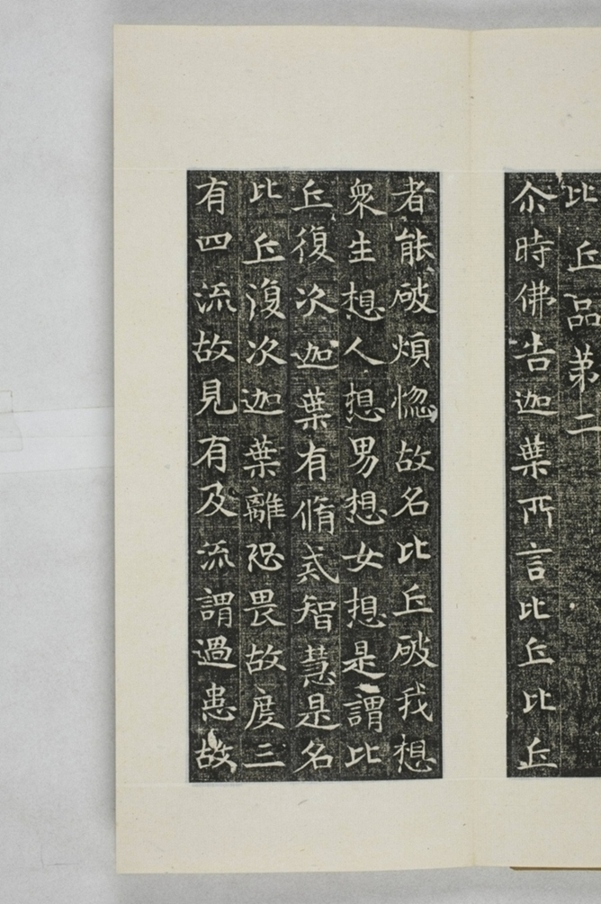 比丘品第二
尒時佛告迦葉所言比丘比丘
者能破煩惚故名比丘破我想
衆生想人想男想女想是謂比
丘復次迦葉有脩戒智慧是名
比丘復次迦葉離恐畏故度三
有四流故見有及流謂過患故